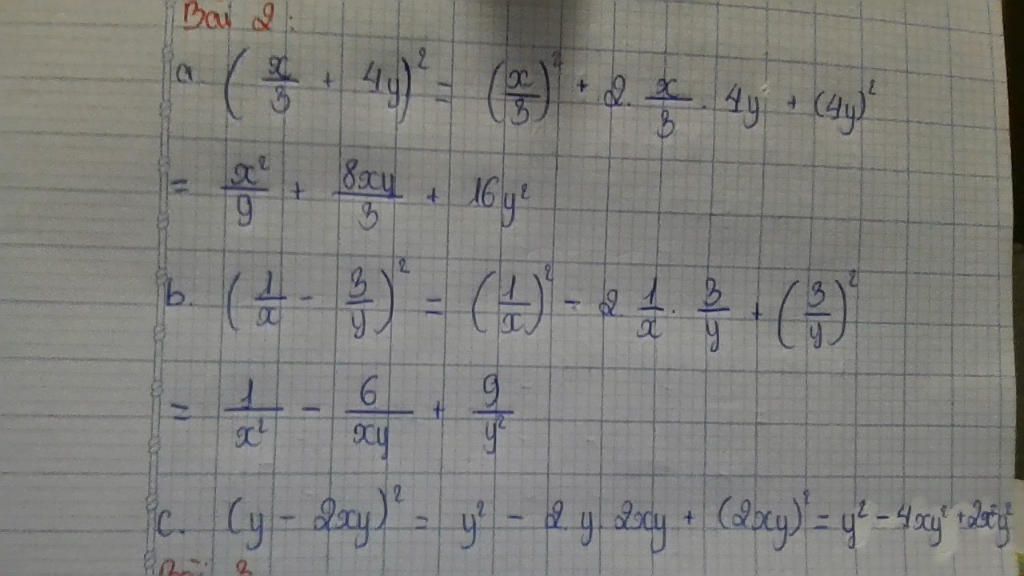 Bài 2:
a. (x/3 + 4y)² = (x/3)² + 2. x/3 . 4y + (4y)²
= x²/9 + 8xy/3 + 16y²
b. (1/x - 3/y)² = (1/x)² - 2 1/x . 3/y + (3/y)²
= 1/x² - 6/xy + 9/y²
c. (y - 2xy)² = y² - 2 y 2xy + (2xy)² = y² - 4xy² + 2x²y²
Bài 3